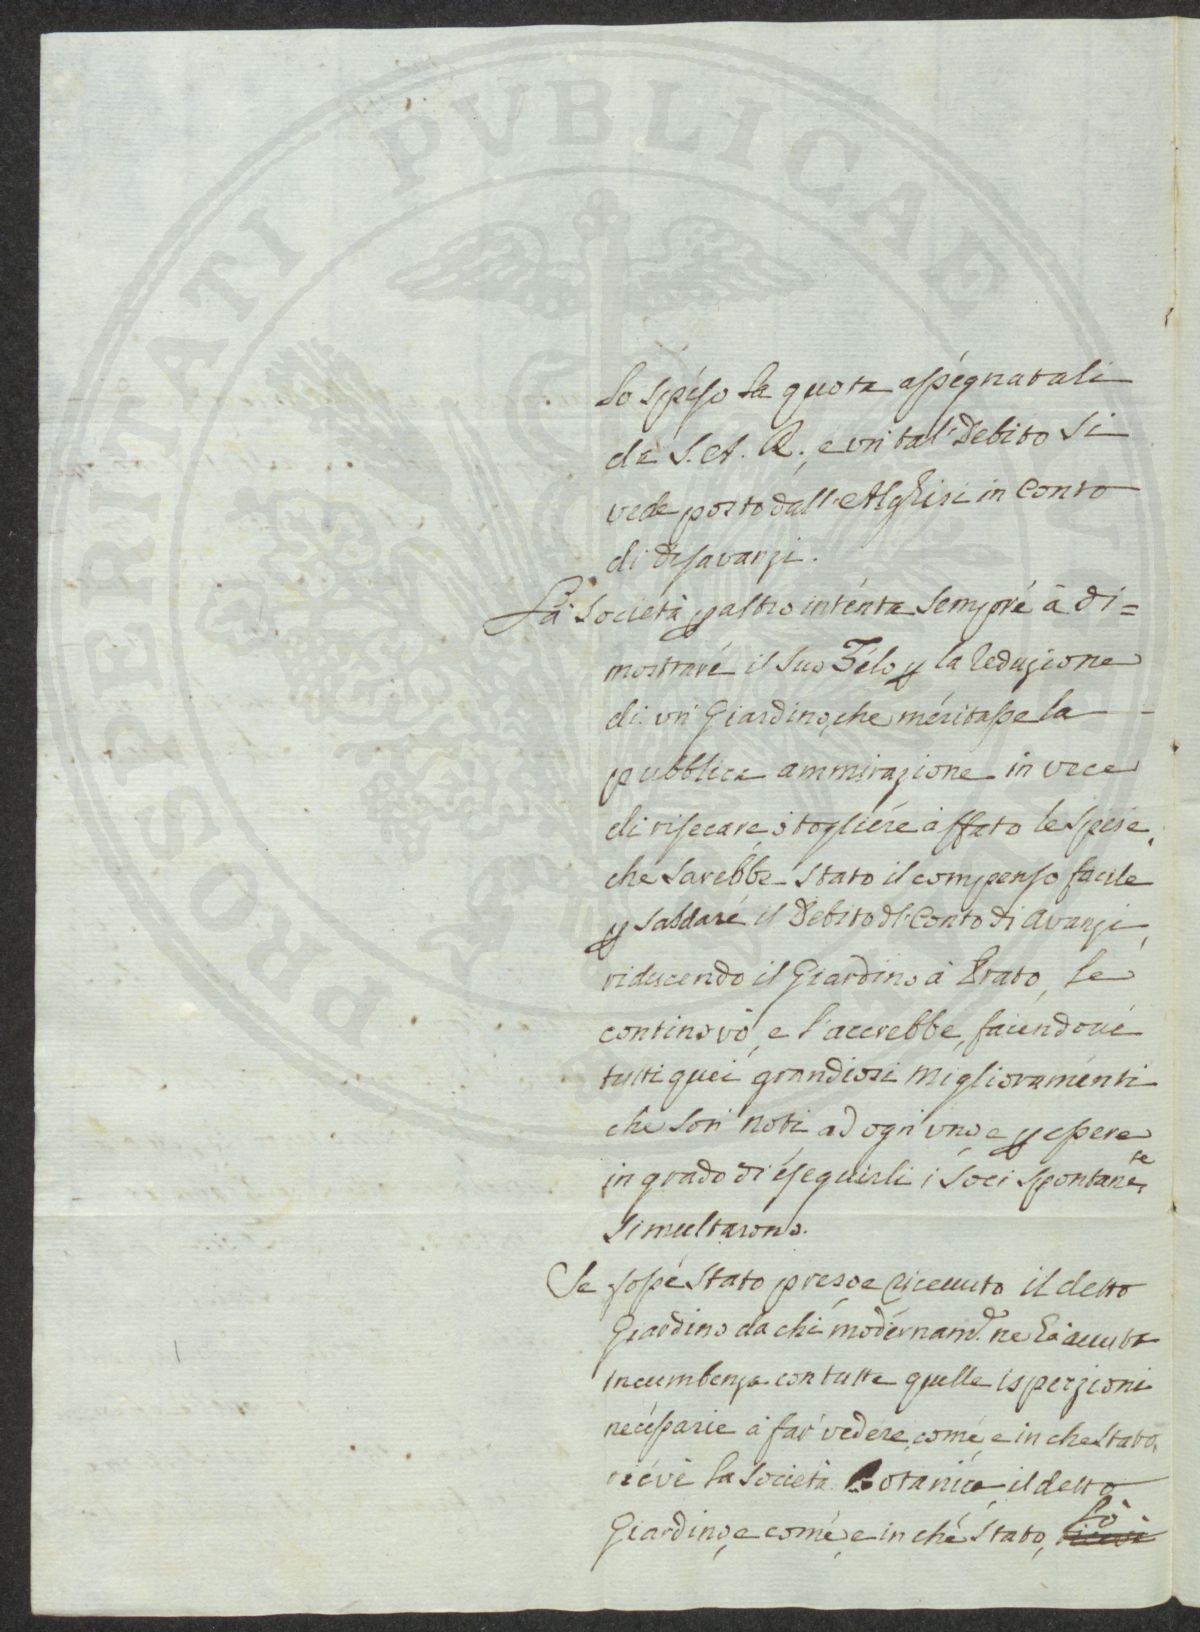 PROSPERITATI PVBLICAE
so speso la quota assegnatali
da S. A. R., e un tal' Debito si
vede posto dall' Alghisi in Conto
di disavanzi.
La Società p altro inténta sempré à di=
mostraré il suo Zélo p la reduzione
di un' Giardino, che méritasse la
pubblica ammirazione in vece
di risecare, o togliére affato le spese,
che sarebbe stato il compenso facile
p saldaré il Debito dl' Conto di Avanzi,
riducendo il Giardino à Prato, le
continovò, e l'accrebbe, facendové
tutti quei grandiosi Miglioraménti
che son' noti ad ogn' uno, e p essere
in grado di éseguirli i Soci spontane.te
si multarono.
Se fosse stato preso e ricevuto il detto
Giardino da chi modérnam.e ne hà avuta
incumbenza con tutte quelle ispezioni
necéssarie à far' vedére, comé, e in che stato,
recévè la Società Botanica, il detto
Giardino, e comé, e in ché stato, lò